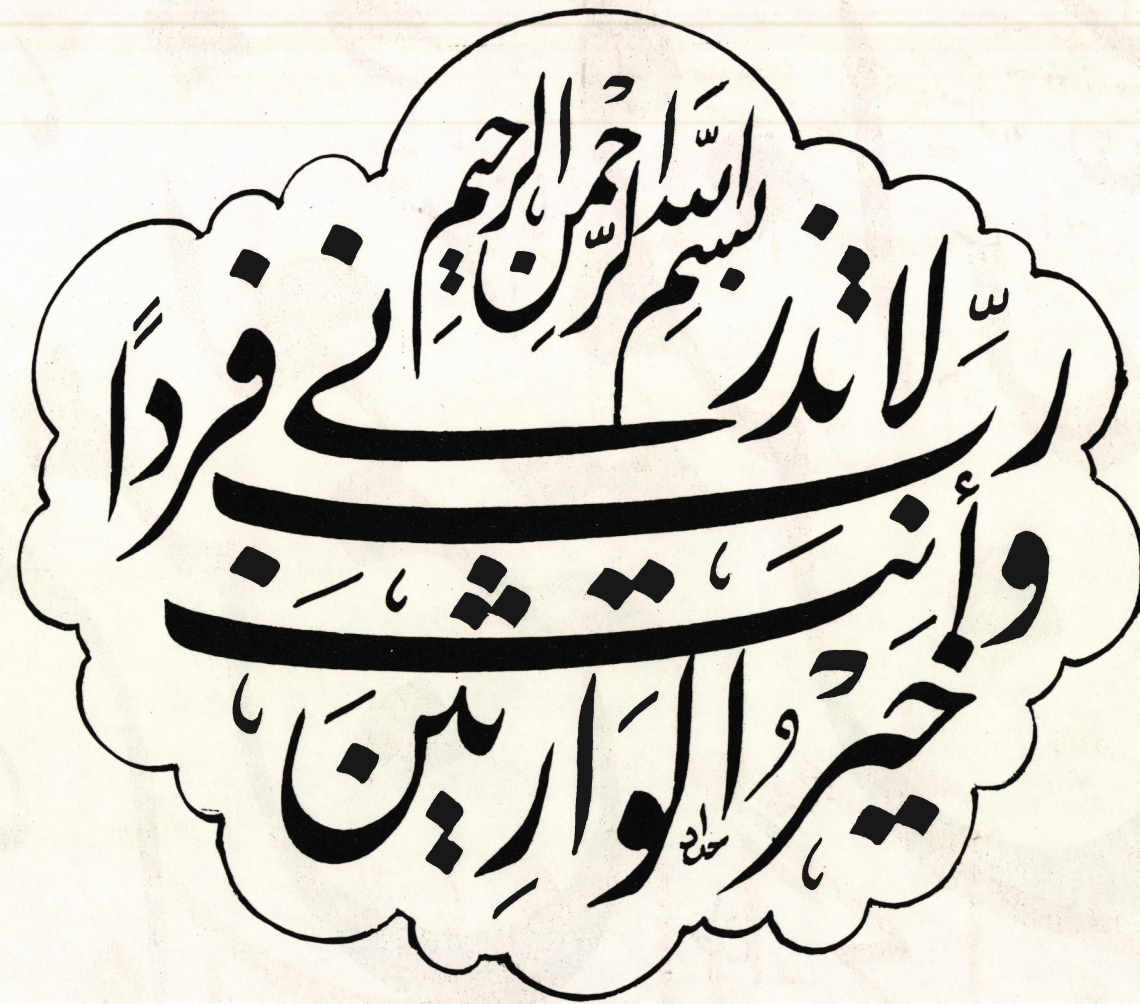 بِسْمِ اللَّهِ الرَّحْمنِ الرَّحِيمِ
رَبِّ لا تذرنے فرداً
وأنتَ خَيْرُ الْوَارِثِينَ
حداد